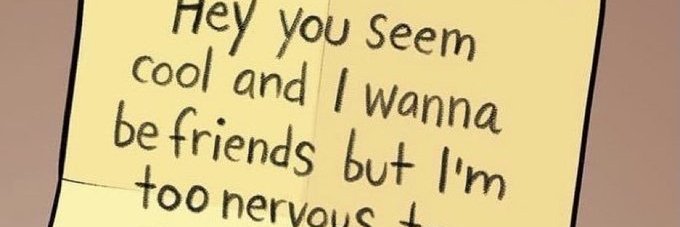 Hey you seem
cool and I wanna
be friends but I'm
too nervous